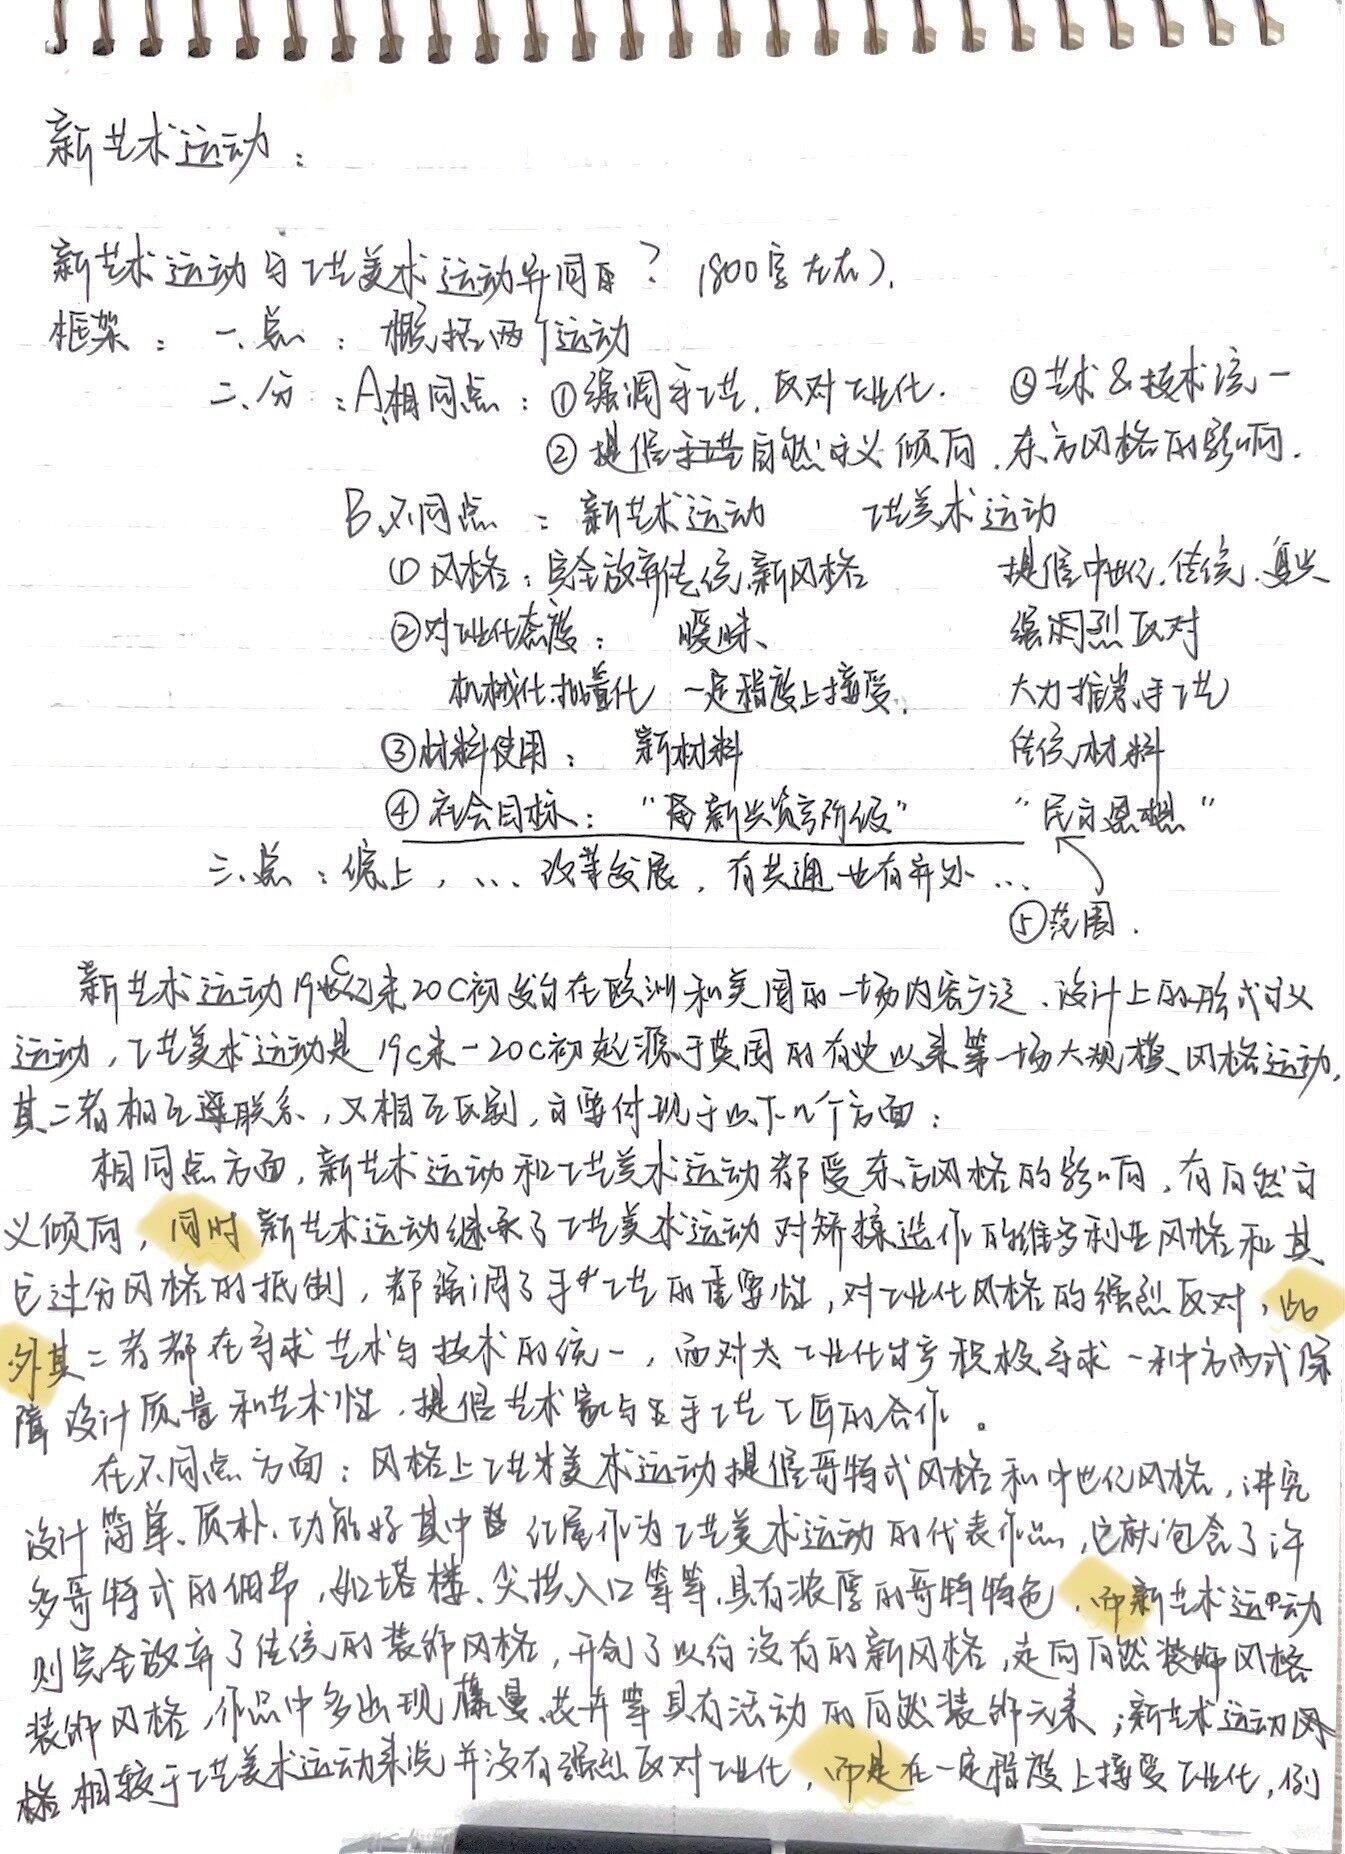 新艺术运动：
新艺术运动与工艺美术运动异同点？（800字左右）.
框架：一、总：概括两个运动
二、分：A.相同点：①强调手工艺.反对工业化. ③艺术&技术统一
②提倡自然主义倾向.东方风格的影响.
B.不同点：新艺术运动 工艺美术运动
①风格：完全放弃传统、新风格 提倡中世纪.传统.复兴
②对工业化态度：暧昧、 强烈反对
机械化.批量化 一定程度上接受. 大力推崇手工艺
③材料使用：新材料 传统材料
④社会目标："为新兴资产阶级" "民主思想"
三、总：综上，... 改革发展，有共通也有异处...
⑤范围.
新艺术运动19C末20C初发自在欧洲和美国的一场内容广泛、设计上的形式主义
运动，工艺美术运动是19C末-20C初起源于英国的有史以来第一场大规模风格运动，
其二者相互联系，又相互区别，主要体现于以下几个方面：
相同点方面，新艺术运动和工艺美术运动都受东方风格的影响，有自然主
义倾向，同时新艺术运动继承了工艺美术运动对矫揉造作的维多利亚风格和其
它过分风格的抵制，都强调了手工艺的重要性，对工业化风格的强烈反对，此
外其二者都在寻求艺术与技术的统一，面对大工业化时寻积极寻求一种方式保
障设计质量和艺术性，提倡艺术家与手工艺工匠的合作。
在不同点方面：风格上工艺美术运动提倡哥特式风格和中世纪风格，讲究
设计简单、质朴、功能好其中红屋作为工艺美术运动的代表作品，它就包含了许
多哥特式的细节，如塔楼、尖拱入口等等，具有浓厚的哥特特色，而新艺术运动
则完全放弃了传统的装饰风格，开创了以往没有的新风格，走向自然装饰风格
装饰风格，作品中多出现藤蔓、花卉等具有活动的自然装饰元素；新艺术运动风
格相较于工艺美术运动来说并没有强烈反对工业化，而是在一定程度上接受工业化，例